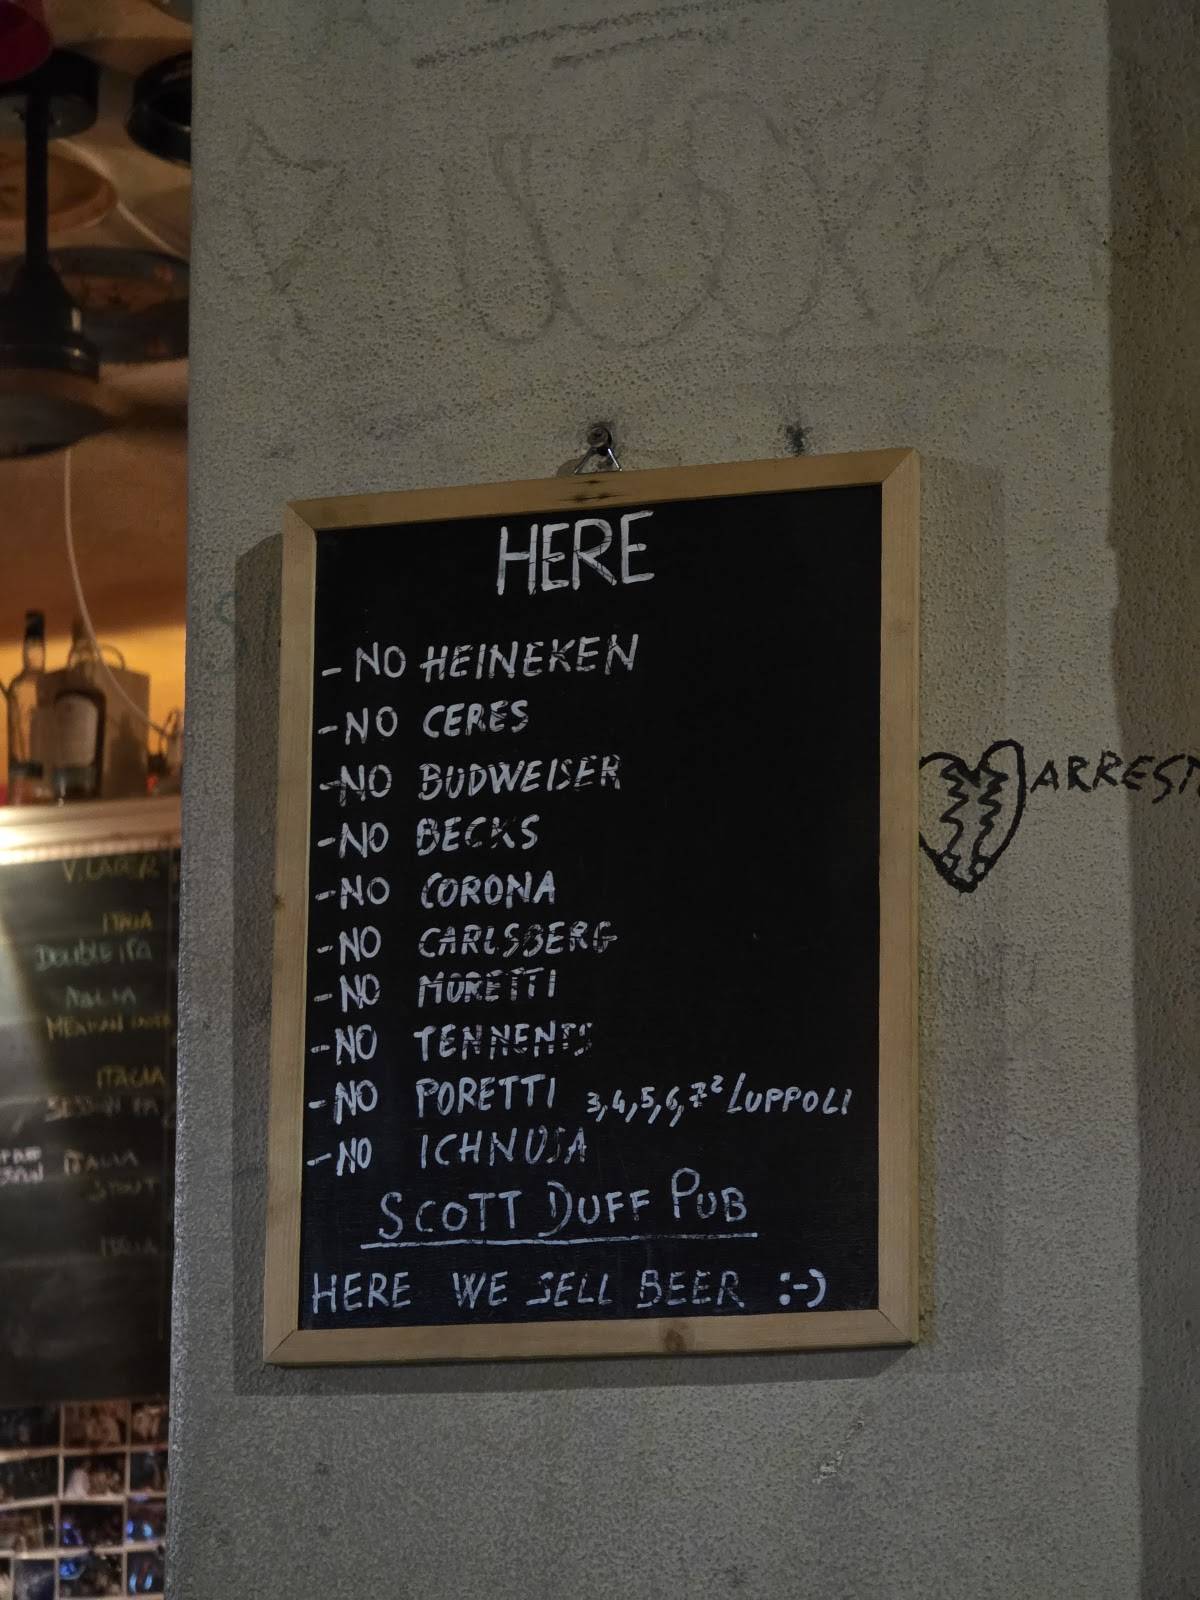 HERE
- NO HEINEKEN
- NO CERES
- NO BUDWEISER
- NO BECKS
- NO CORONA
- NO CARLSBERG
- NO MORETTI
- NO TENNENTS
- NO PORETTI 3,4,5,6,7² LUPPOLI
- NO ICHNUSA
SCOTT DUFF PUB
HERE WE SELL BEER :-)
ARREST
ITALIA
DOUBLE IPA
ITALIA
MEXICAN
ITALIA
ITALIA
STOUT
ITALIA